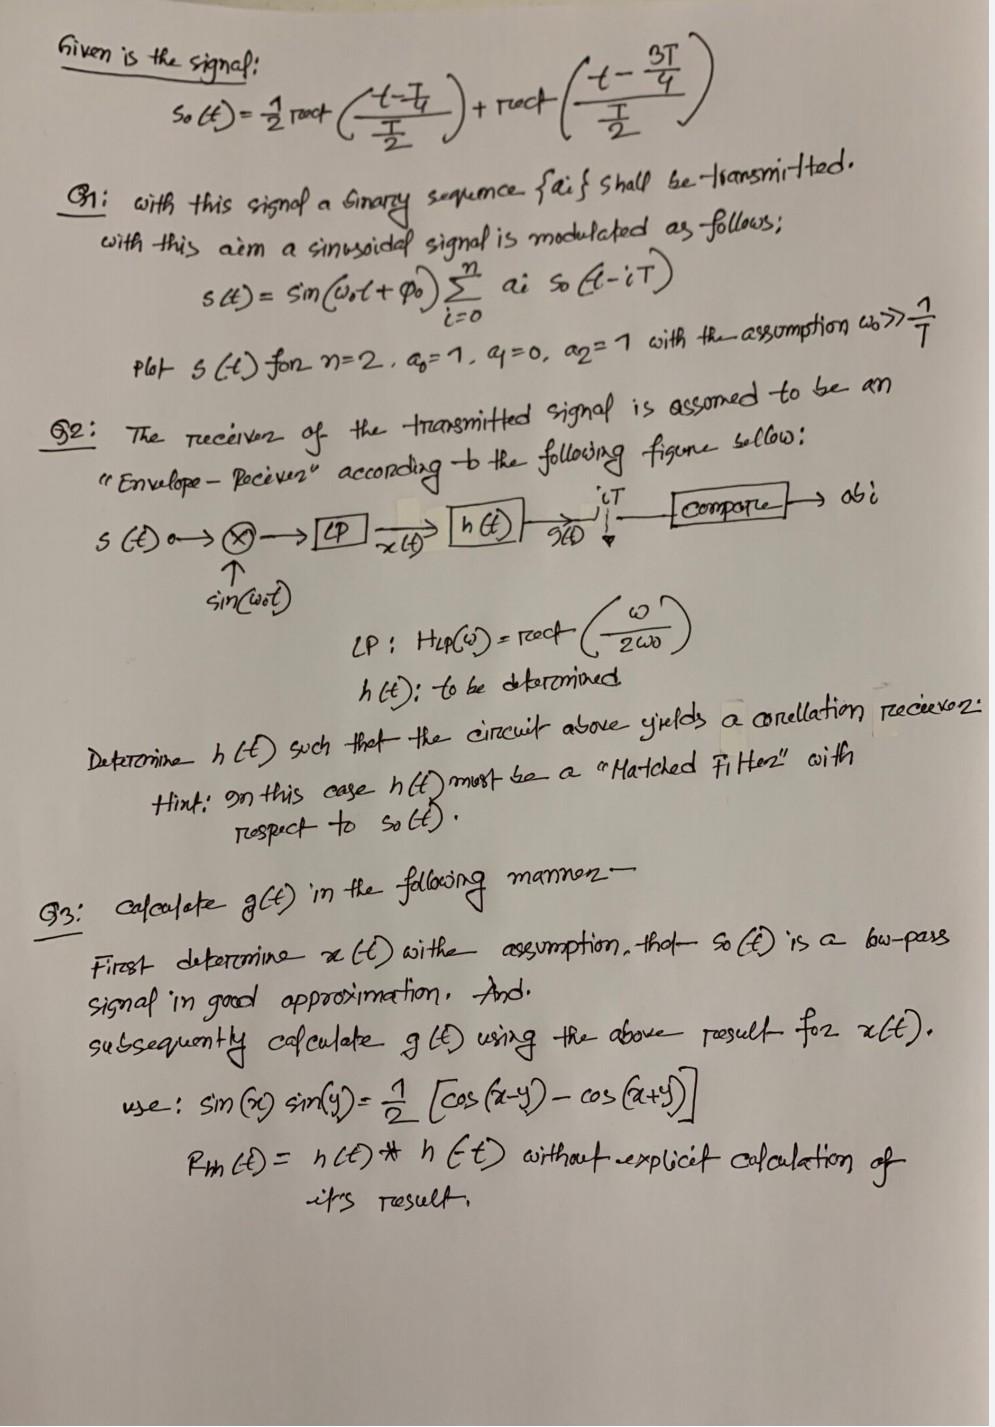 Given is the signal:
so(t) = 1/2 rect ((t - T/4)/(T/2)) + rect ((t - 3T/4)/(T/2))
Q1: with this signal a binary sequence {ai} shall be transmitted.
with this aim a sinusoidal signal is modulated as follows;
s(t) = sin(ω0t + φ0) Σ_{i=0}^{n} ai so(t-iT)
Plot s(t) for n=2, a0=1, a1=0, a2=1 with the assumption ω0 >> 1/T
Q2: The receiver of the transmitted signal is assomed to be an
"Envelope - Reciver" according to the following figure bellow:
s(t) → ⊗ → LP x(t) → h(t) g(t) iT compare → abi
↑
sin(ω0t)
LP: HLP(ω) = rect (ω/2ω0)
h(t): to be determined
Determine h(t) such that the circuit above yields a corellation reciever:
Hint: In this case h(t) must be a "Matched Filter" with
respect to so(t).
Q3: calculate g(t) in the following manner—
First determine x(t) withe assumption, that so(t) is a low-pass
signal in good approximation. And.
subsequently calculate g(t) using the above result for x(t).
use: sin(x) sin(y) = 1/2 [cos(x-y) - cos(x+y)]
Rhh(t) = h(t) * h(-t) without explicit calculation of
it's result.